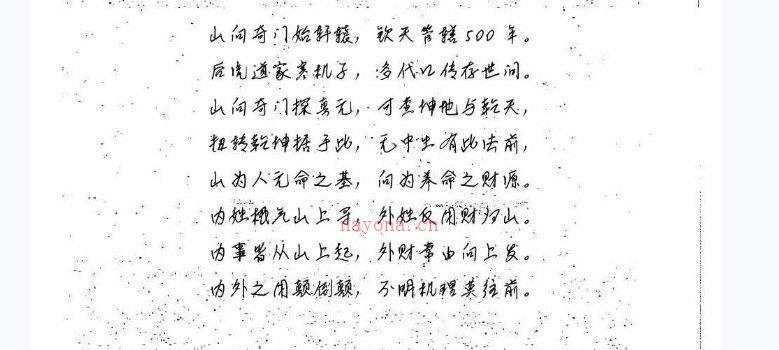 山向奇门始轩辕，钦天管辖500年。
后凭道家寒机子，多代口传存世间。
山向奇门探真元，可查坤地与乾天，
扭转乾坤据于此，无中生有此法前，
山为人元命之基，向为养命之财源。
内姓概元山上寻，外姓反用财归山。
nayona.cn
内事皆从山上起，外财常由向上发。
内外之用颠倒颠，不明机理莫往前。